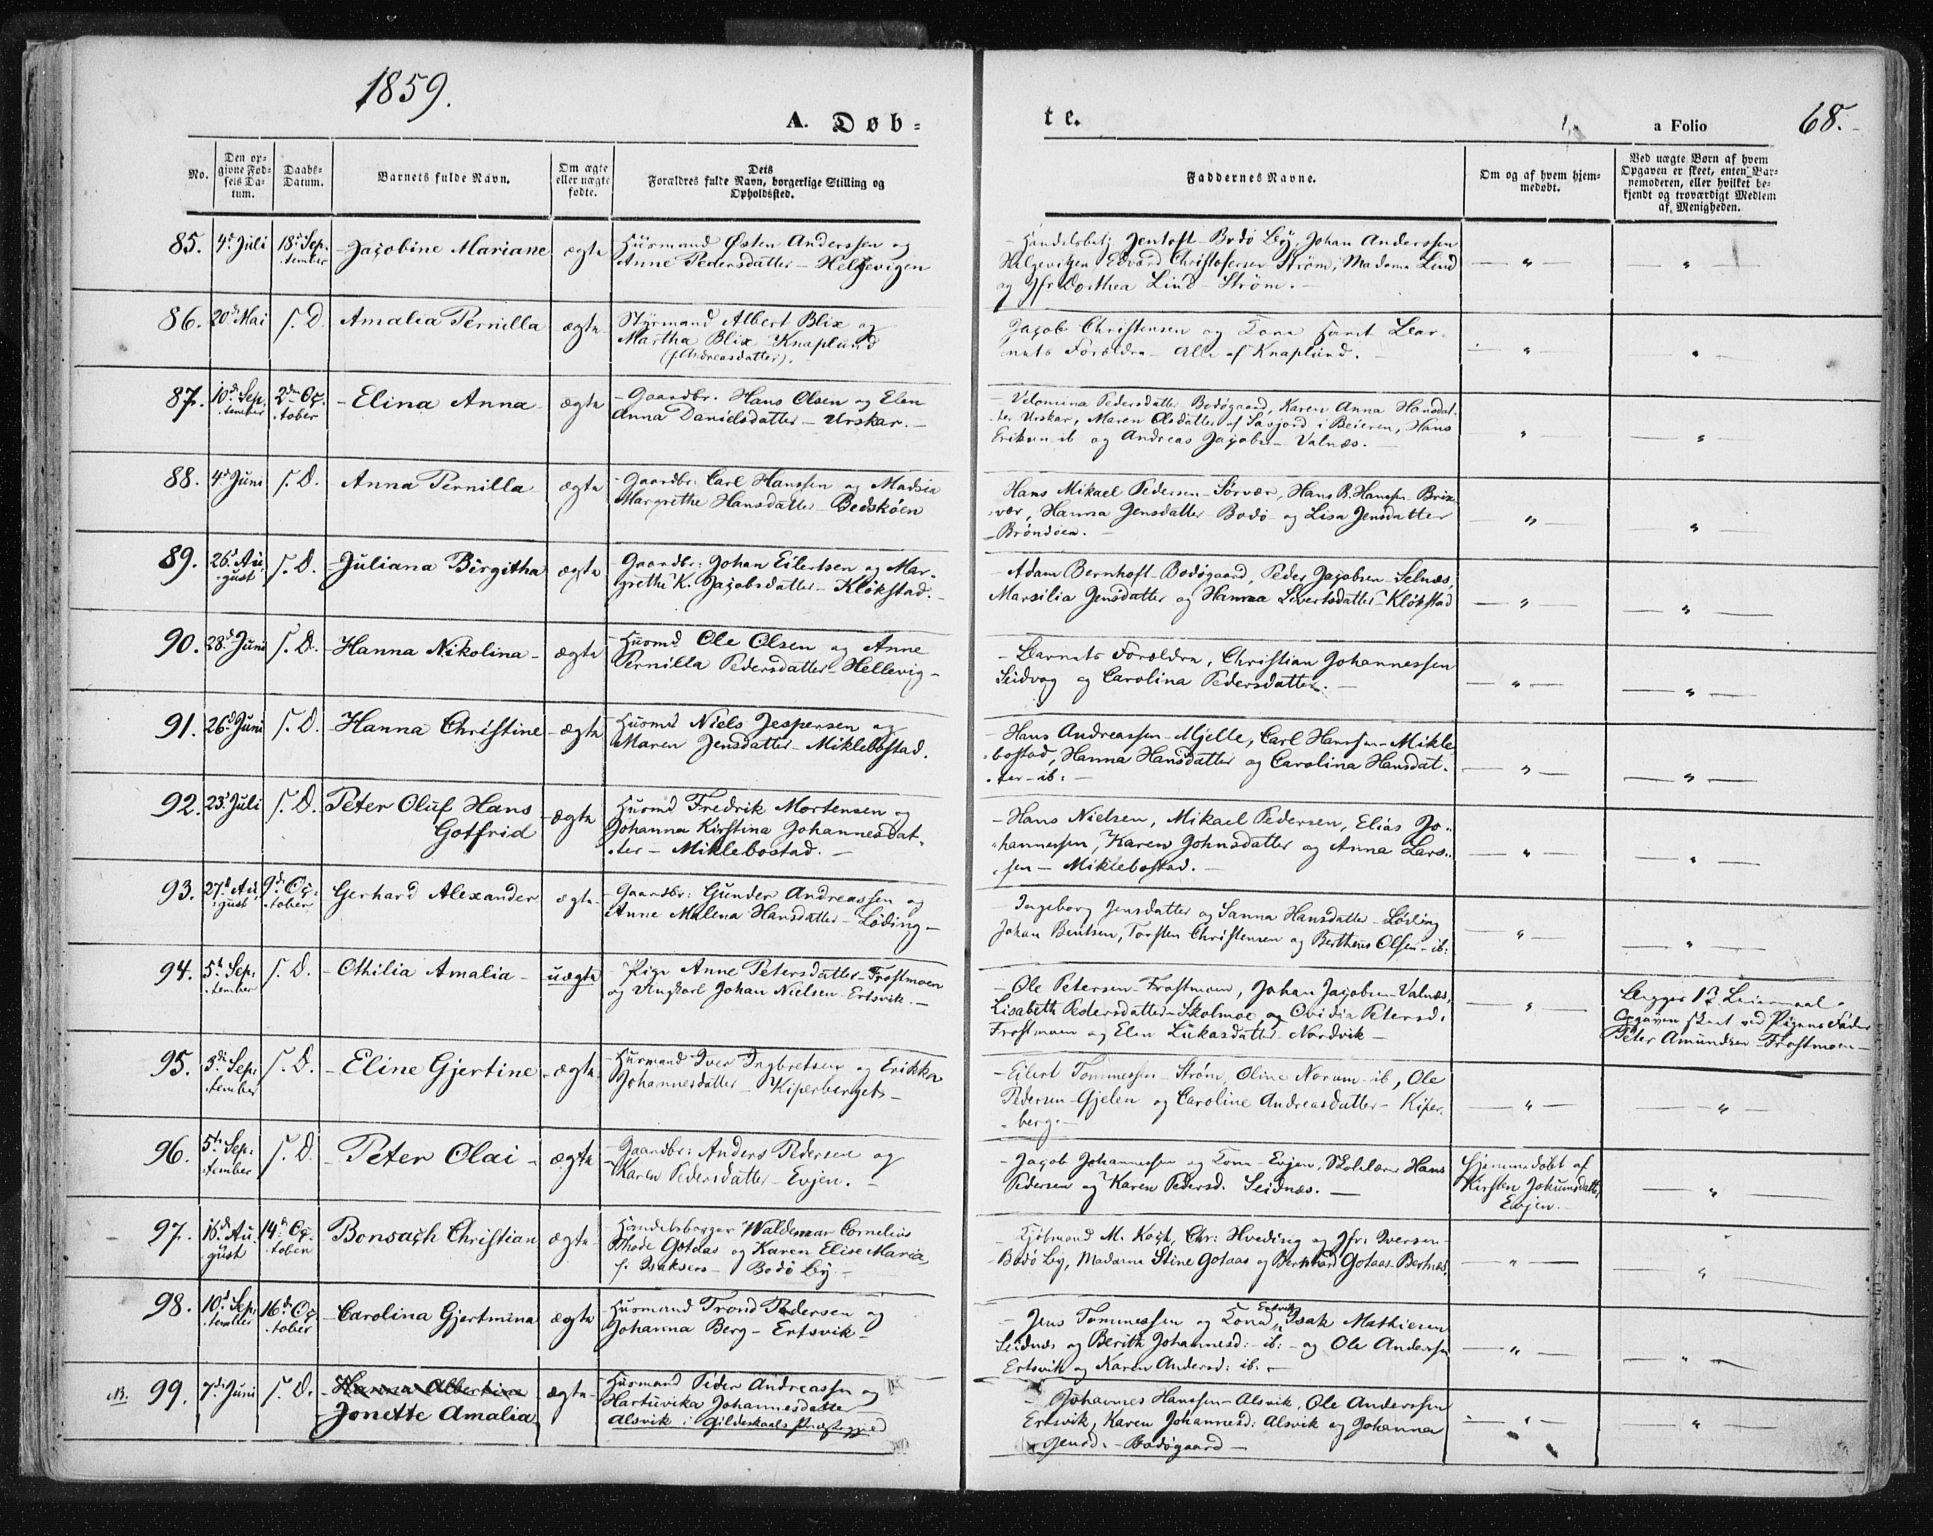 1859.
A. Døb-
te.
a Folio
68.
No.
Den op-
givne Fød-
sels Da-
tum.
Daabs-
Datum.
Barnets fulde Navn.
Om ægte
eller uægte
fødte.
Dets
Forældres fulde Navn, borgerlige Stilling og
Opholdssted.
Faddernes Navne.
Om og af hvem hjem-
medøbt.
Ved uægte Børn af hvem
Opgaven er skeet, enten Bar-
nemoderen, eller hvilket be-
kjendt og troværdigt Medlem
af Menigheden.
85. 4d Juli 18d Sep-
tember Jacobine Mariane ægte Huusmand Østen Anderssen og
Anne Pedersdatter - Helgevigen
- Handelsbetj. Jentoft - Bodø By, Johan Anderssen
Helgevigen, Edvard Christofersen Strøm, Madame Lind
og Jfr Dorthea Lind - Strøm. -
- " -
86. 20d Mai s. D. Amalia Pernilla ægte Styrmand Albert Blix og
Martha Blix - Knaplund
(f. Andreasdatter). -
Jacob Christensen og Kona samt Bar-
nets Forældre - Alle af Knaplund.
- " -
87. 10d Sep-
tember 2den Oc-
tober - Elina Anna - ægte - Gaardbr. Hans Olsen og Elen
Anna Danielsdatter - Urskar. -
Velomina Pedersdatter Bodøgaard, Karen Anna Hansdat-
ter Urskar, Maren Olsdatter af Savjord i Beieren, Hans
Eriksen ib og Andreas Jacobsen - Valnæs. -
"
88. 4d Juni s. D. Anna Pernilla ægte - Gaardbr: Carl Hanssen og Madsia
Margrethe Hansdatter - Bedskøen
Hans Mikael Pedersen - Sørvær, Hans B. Hanssen - Brix-
vær, Hanna Jensdatter - Bodø - og Lisa Jensdatter
- Brøndøen. -
- " -
89. 26d Au-
gust s. D. - Juliana Birgitha ægte - Gaardbr: Johan Eilertsen og Mar-
grethe K. Jacobsdatter - Kløkstad. -
- Adam Bernhoft - Bodøgaard, Peder Jacobsen - Selnæs,
Marsilia Jensdatter og Hanna Sivertsdatter - Kløkstad
- " -
90. 28d Juni s. D. - Hanna Nikolina - ægte Huusmd Ole Olsen og Anne
Pernilla Pedersdatter - Hellevig -
- Barnets Forældre, Christian Johannessen
Seidvag og Carolina Pedersdatter. -
- " -
91. 26d Juni s. D. - Hanna Christine - ægte Huusmd Niels Jespersen og
Maren Jensdatter - Miklebostad.
- Hans Andreassen - Mjelle, Carl Hanssen - Mikle-
bostad, Hanna Hansdatter og Carolina Hansdat-
ter - ib: -
- " -
92. 23d Juli s. D. Peter Oluf Hans
Gotfrid - ægte Huusmd Fredrik Mortensen og
Johanna Kirstina Johannesdat-
ter - Miklebostad. -
- Hans Nielsen, Mikael Pedersen, Elias Jo-
hannessen, Karen Johnsdatter og Anna Lars-
sen - Miklebostad. -
- " -
93. 27d Au-
gust 9de Oc-
tober Gerhard Alexander ægte - Gaardbr: Gunder Andreassen og
Anne Malena Hansdatter - Løding -
- Ingeborg Jensdatter og Sanna Hansdatter - Løding
Johan Bentsen, Torsten Christensen og Bertheus Olsen - ib:
- " -
94. 5t Sep-
tember s. D. - Othilia Amalia - uægte - Pige Anne Petersdatter - Frostmoen
og Ungkarl Johan Nielsen - Ertsvik. -
- Ole Petersen - Frostmoen, Johan Jacobsen - Valnæs,
Lisabeth Pedersdatter - Skolmoe, og Ovidia Petersd:
Frostmoen og Elen Lukasdatter - Nordvik -
- " -
Begges 1st Leiermaal -
Opgaven skeet ved Pigens Fader
Peter Amundsen - Frostmoen -
95. 3di Sep-
tember s. D. - Eline Gjertine - ægte Huusmand Iver Ingbretsen og Erikka
Johannesdatter - Kiperberget -
- Eilert Tommessen - Strøm, Oline Norum - ib, Ole
Pedersen - Gjelen og Caroline Andreasdatter - Kiper-
berg. -
- " -
96. 5t Sep-
tember s. D. - Peter Olai - ægte - Gaardbr: Anders Pedersen og
Karen Pedersdatter - Evjen. -
- Jacob Johannessen og Kone - Evjen, Skolelærer Hans
Pedersen og Karen Pedersd. Seidnæs. -
Hjemmedøbt af
Kirsten Jokumsdatter,
Evjen. -
"
97. 16de Au-
gust 14d Oc-
tober Bonsach Christian ægte - Handelsborger Waldemar Cornelius
Thode Gotaas og Karen Elise Maria
f. Isaksen - Bodø By -
- Kjøbmand M. Koch, Chr: Hveding og Jfr: Iversen -
Bodø By, Madame Stine Gotaas og Bernhard Gotaas - Bertnæs
- " -
98. 10d Sep-
tember 16de Oc-
tober - Carolina Gjertmina ægte Huusmand Trond Pedersen og
Johanna Berg - Ertsvik -
- Jens Tommessen og Kona Ertsvik, Isak Mathiesen
Seidnæs og Berith Johannesd: ib: - og Ole Anderssen
Ertsvik og Karen Andersd: ib: -
- " -
NB. 99. 7di Juni s. D. - Hanna Albertina
Jonette Amalia ægte - Huusmand Peder Andreassen og
Hartuvika Johannesdatter
Alsvik i Gildeskaals Præstegjeld
- Johannes Hanssen - Alsvik, Ole Anderssen
Ertsvik, Karen Johannesd: Alsvik og Johanna
Jensd. - Bodøgaard -
"